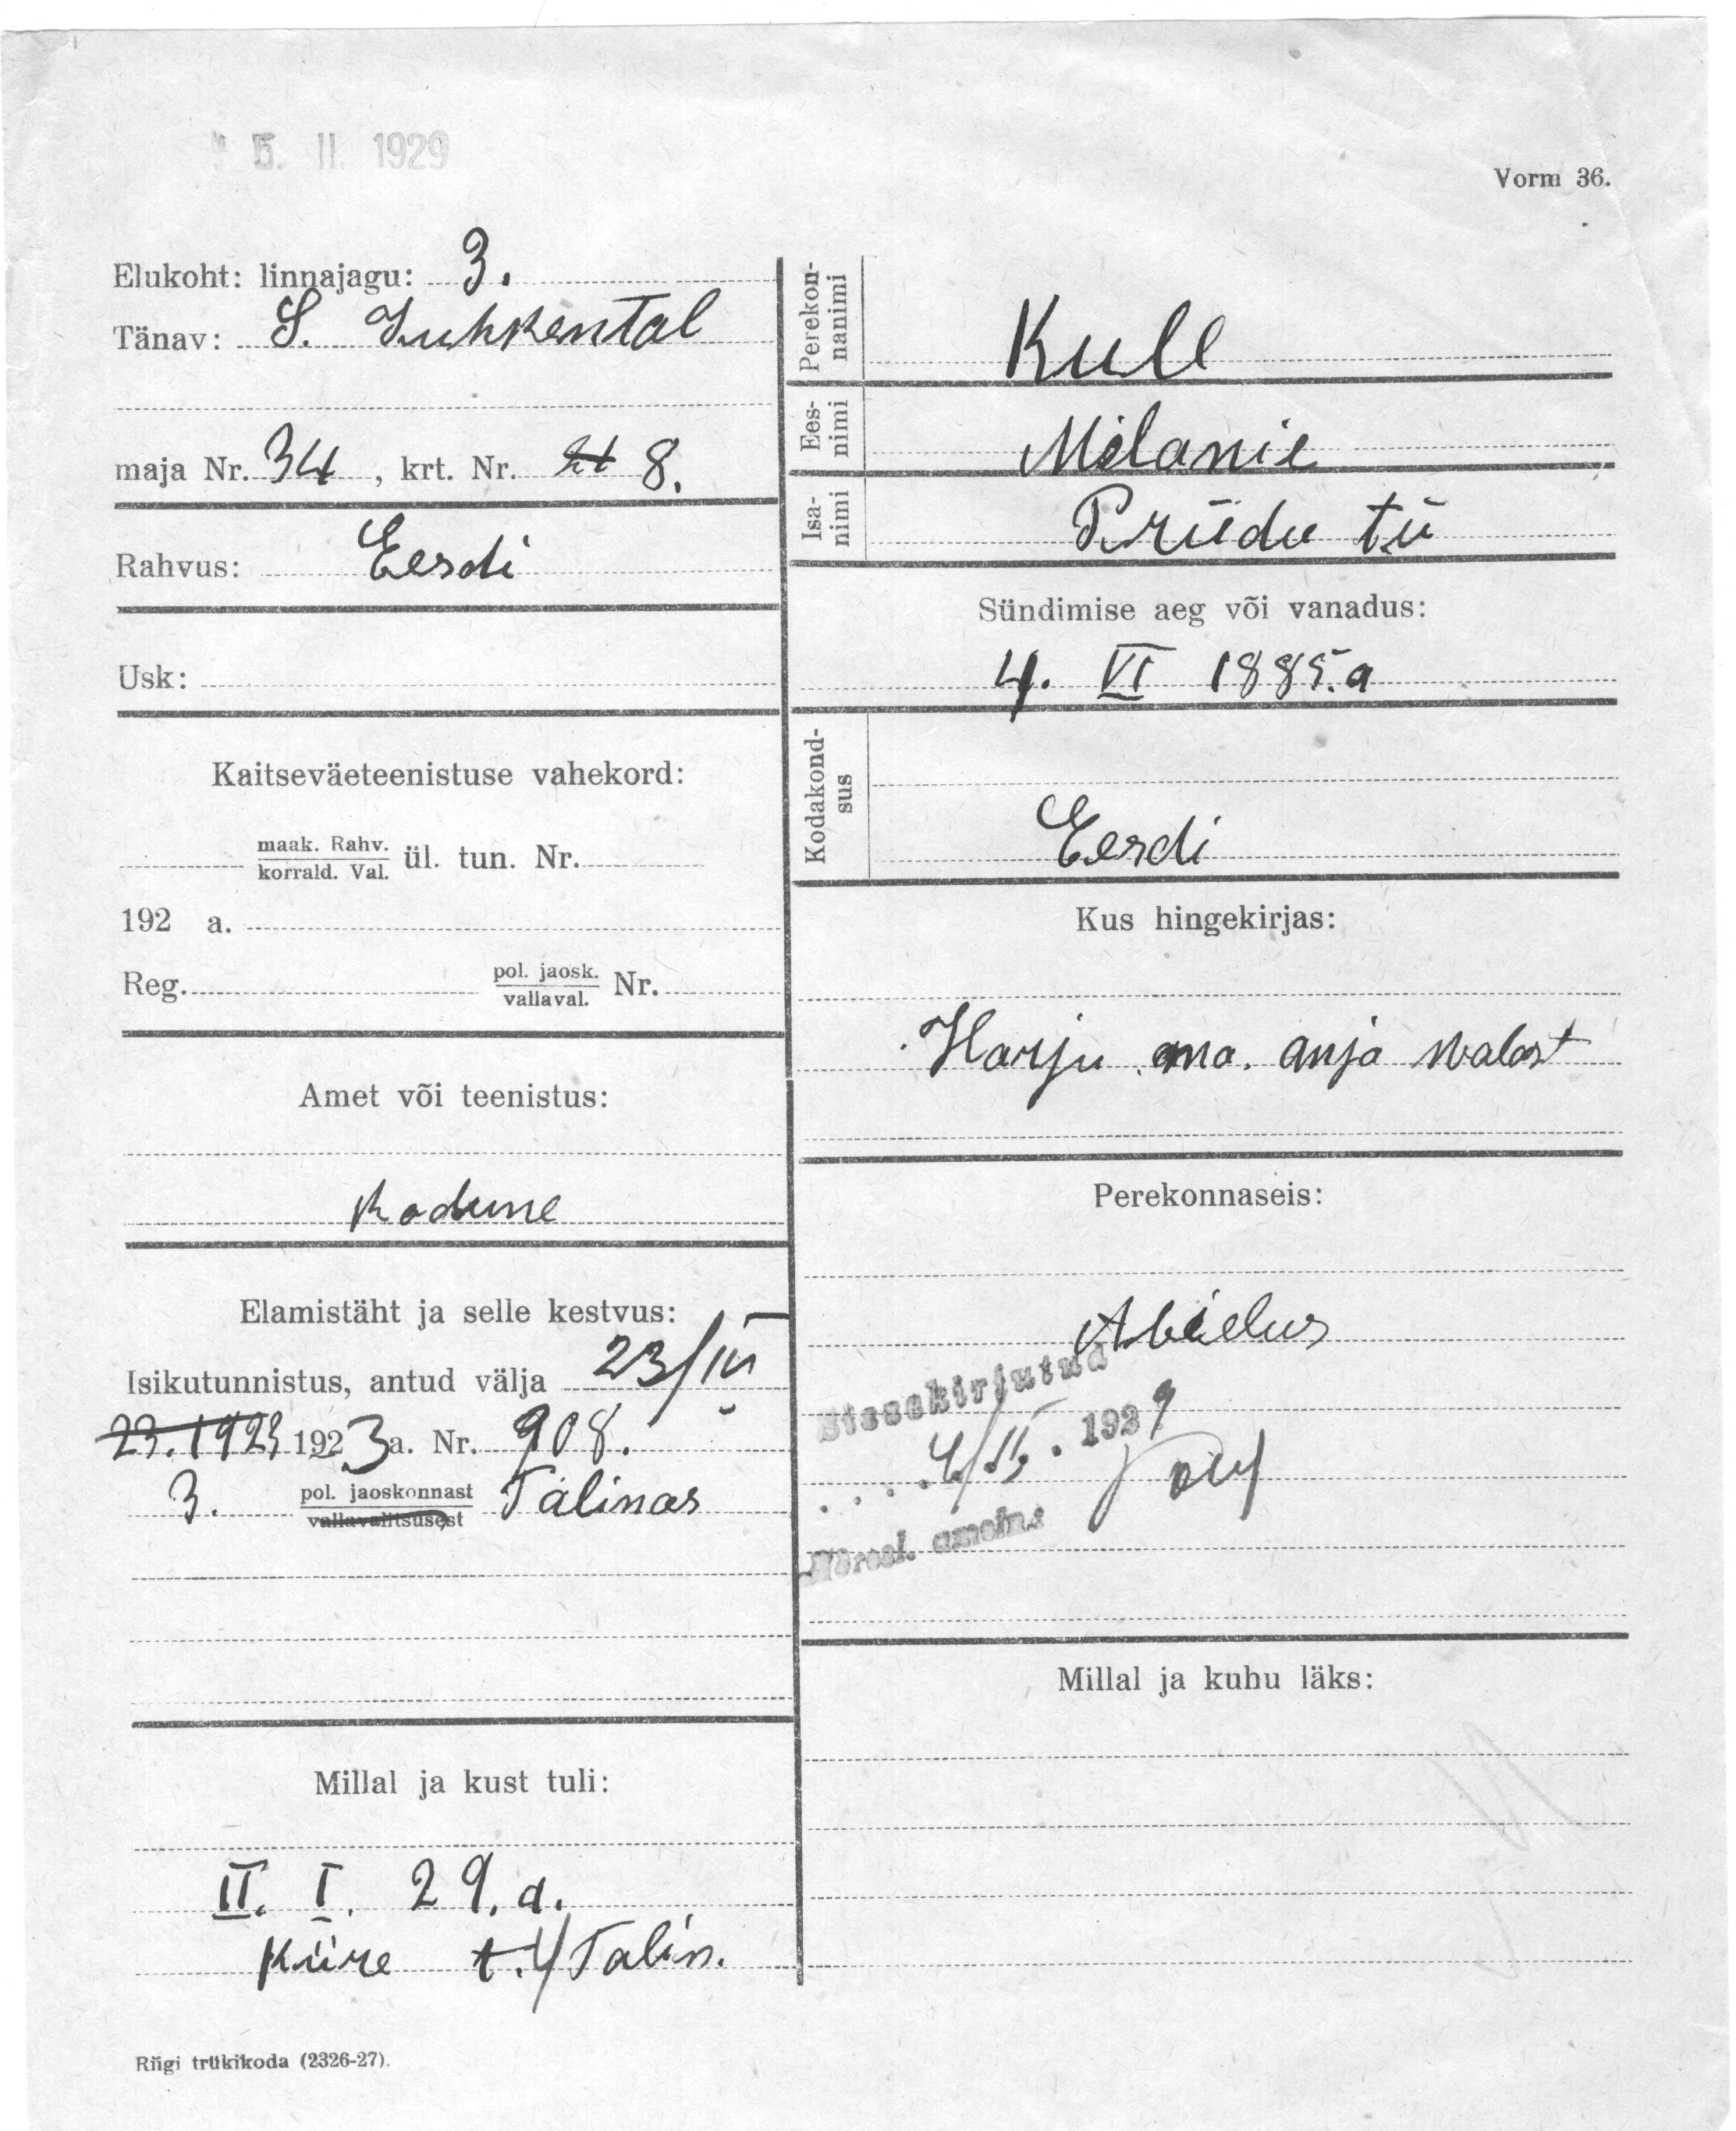 5. II. 1929
Vorm 36.
Elukoht: linnajagu: 3.
Tänav: S. Juhkental
maja Nr. 34, krt. Nr. 8.
Rahvus: Eesdi
Usk:
Kaitseväeteenistuse vahekord:
maak. Rahv.
korrald. Val. ül. tun. Nr.
192 a.
Reg. pol. jaosk.
vallaval. Nr.
Amet või teenistus:
Kodune
Elamistäht ja selle kestvus:
Isikutunnistus, antud välja 23/III
23.1923 1923 a. Nr. 908.
3. pol. jaoskonnast Talinas
vallavalitsusest
Millal ja kust tuli:
II. I. 29. a.
Kiire t. 4 Talin.
Riigi trükikoda (2326-27).
Perekon-
nanimi
Kull
Ees-
nimi
Melanie
Isa-
nimi
Priidu tü
Sündimise aeg või vanadus:
4. VI 1885. a
Kodakond-
sus
Eesdi
Kus hingekirjas:
Harju ma. anja walast
Perekonnaseis:
Abielus
Sissekirjutud
4/II. 1929
ametn.:
Millal ja kuhu läks: